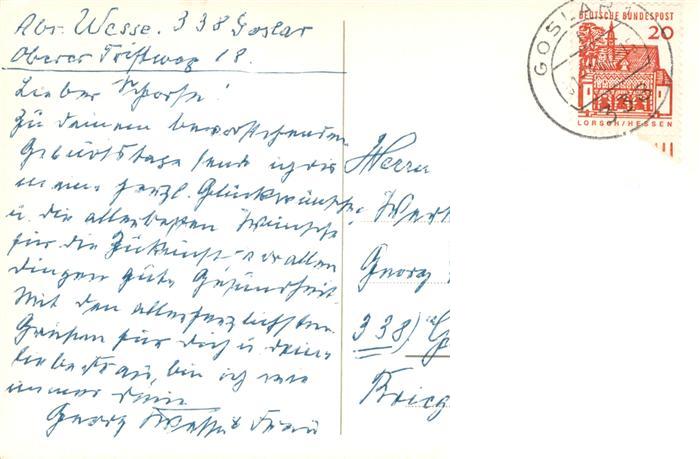 Abs. Wesse. 338 Goslar
Oberer Triftweg 18.
Lieber Schorse!
Zu deinem bevorstehenden
Geburtstage sende ich dir
meine herzl. Glückwünsche
u. die allerbesten Wünsche
für die Zukunft - vor allen
dingen gute Gesundheit
Mit den allerherzlichsten
Grüßen für dich u. deine
bin ich wie
immer dein
Georg Wesse & Frau
GOSLAR
DEUTSCHE BUNDESPOST
20
LORSCH/HESSEN
Herrn
Werk
Georg
338)
Krieg